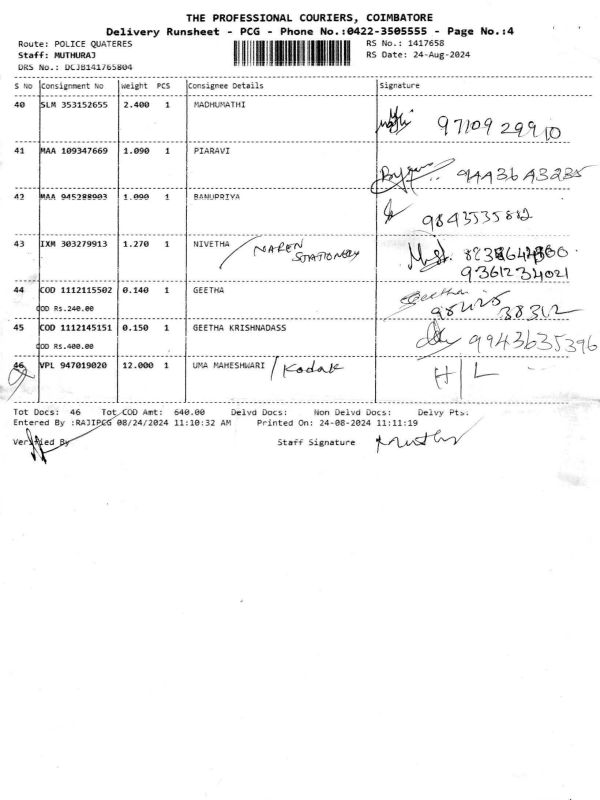 THE PROFESSIONAL COURIERS, COIMBATORE
Delivery Runsheet - PCG - Phone No.:0422-3505555 - Page No.:4
Route: POLICE QUATERES RS No.: 1417658
Staff: MUTHURAJ RS Date: 24-Aug-2024
DRS No.: DCJB141765804
S No Consignment No Weight PCS Consignee Details Signature
40 SLM 353152655 2.400 1 MADHUMATHI
9710929910
41 MAA 109347669 1.090 1 PIARAVI
9443643235
42 MAA 945288903 1.090 1 BANUPRIYA
9843535812
43 IXM 303279913 1.270 1 NIVETHA / NAREN STATIONERY
9361234021
44 COD 1112115502 0.140 1 GEETHA Geetha
COD Rs.240.00 38312
45 COD 1112145151 0.150 1 GEETHA KRISHNADASS 9943635396
COD Rs.400.00
46 VPL 947019020 12.000 1 UMA MAHESHWARI / Kodak H/L
Tot Docs: 46 Tot COD Amt: 640.00 Delvd Docs: Non Delvd Docs: Delvy Pts:
Entered By :RAJIPCG 08/24/2024 11:10:32 AM Printed On: 24-08-2024 11:11:19
Verified By Staff Signature